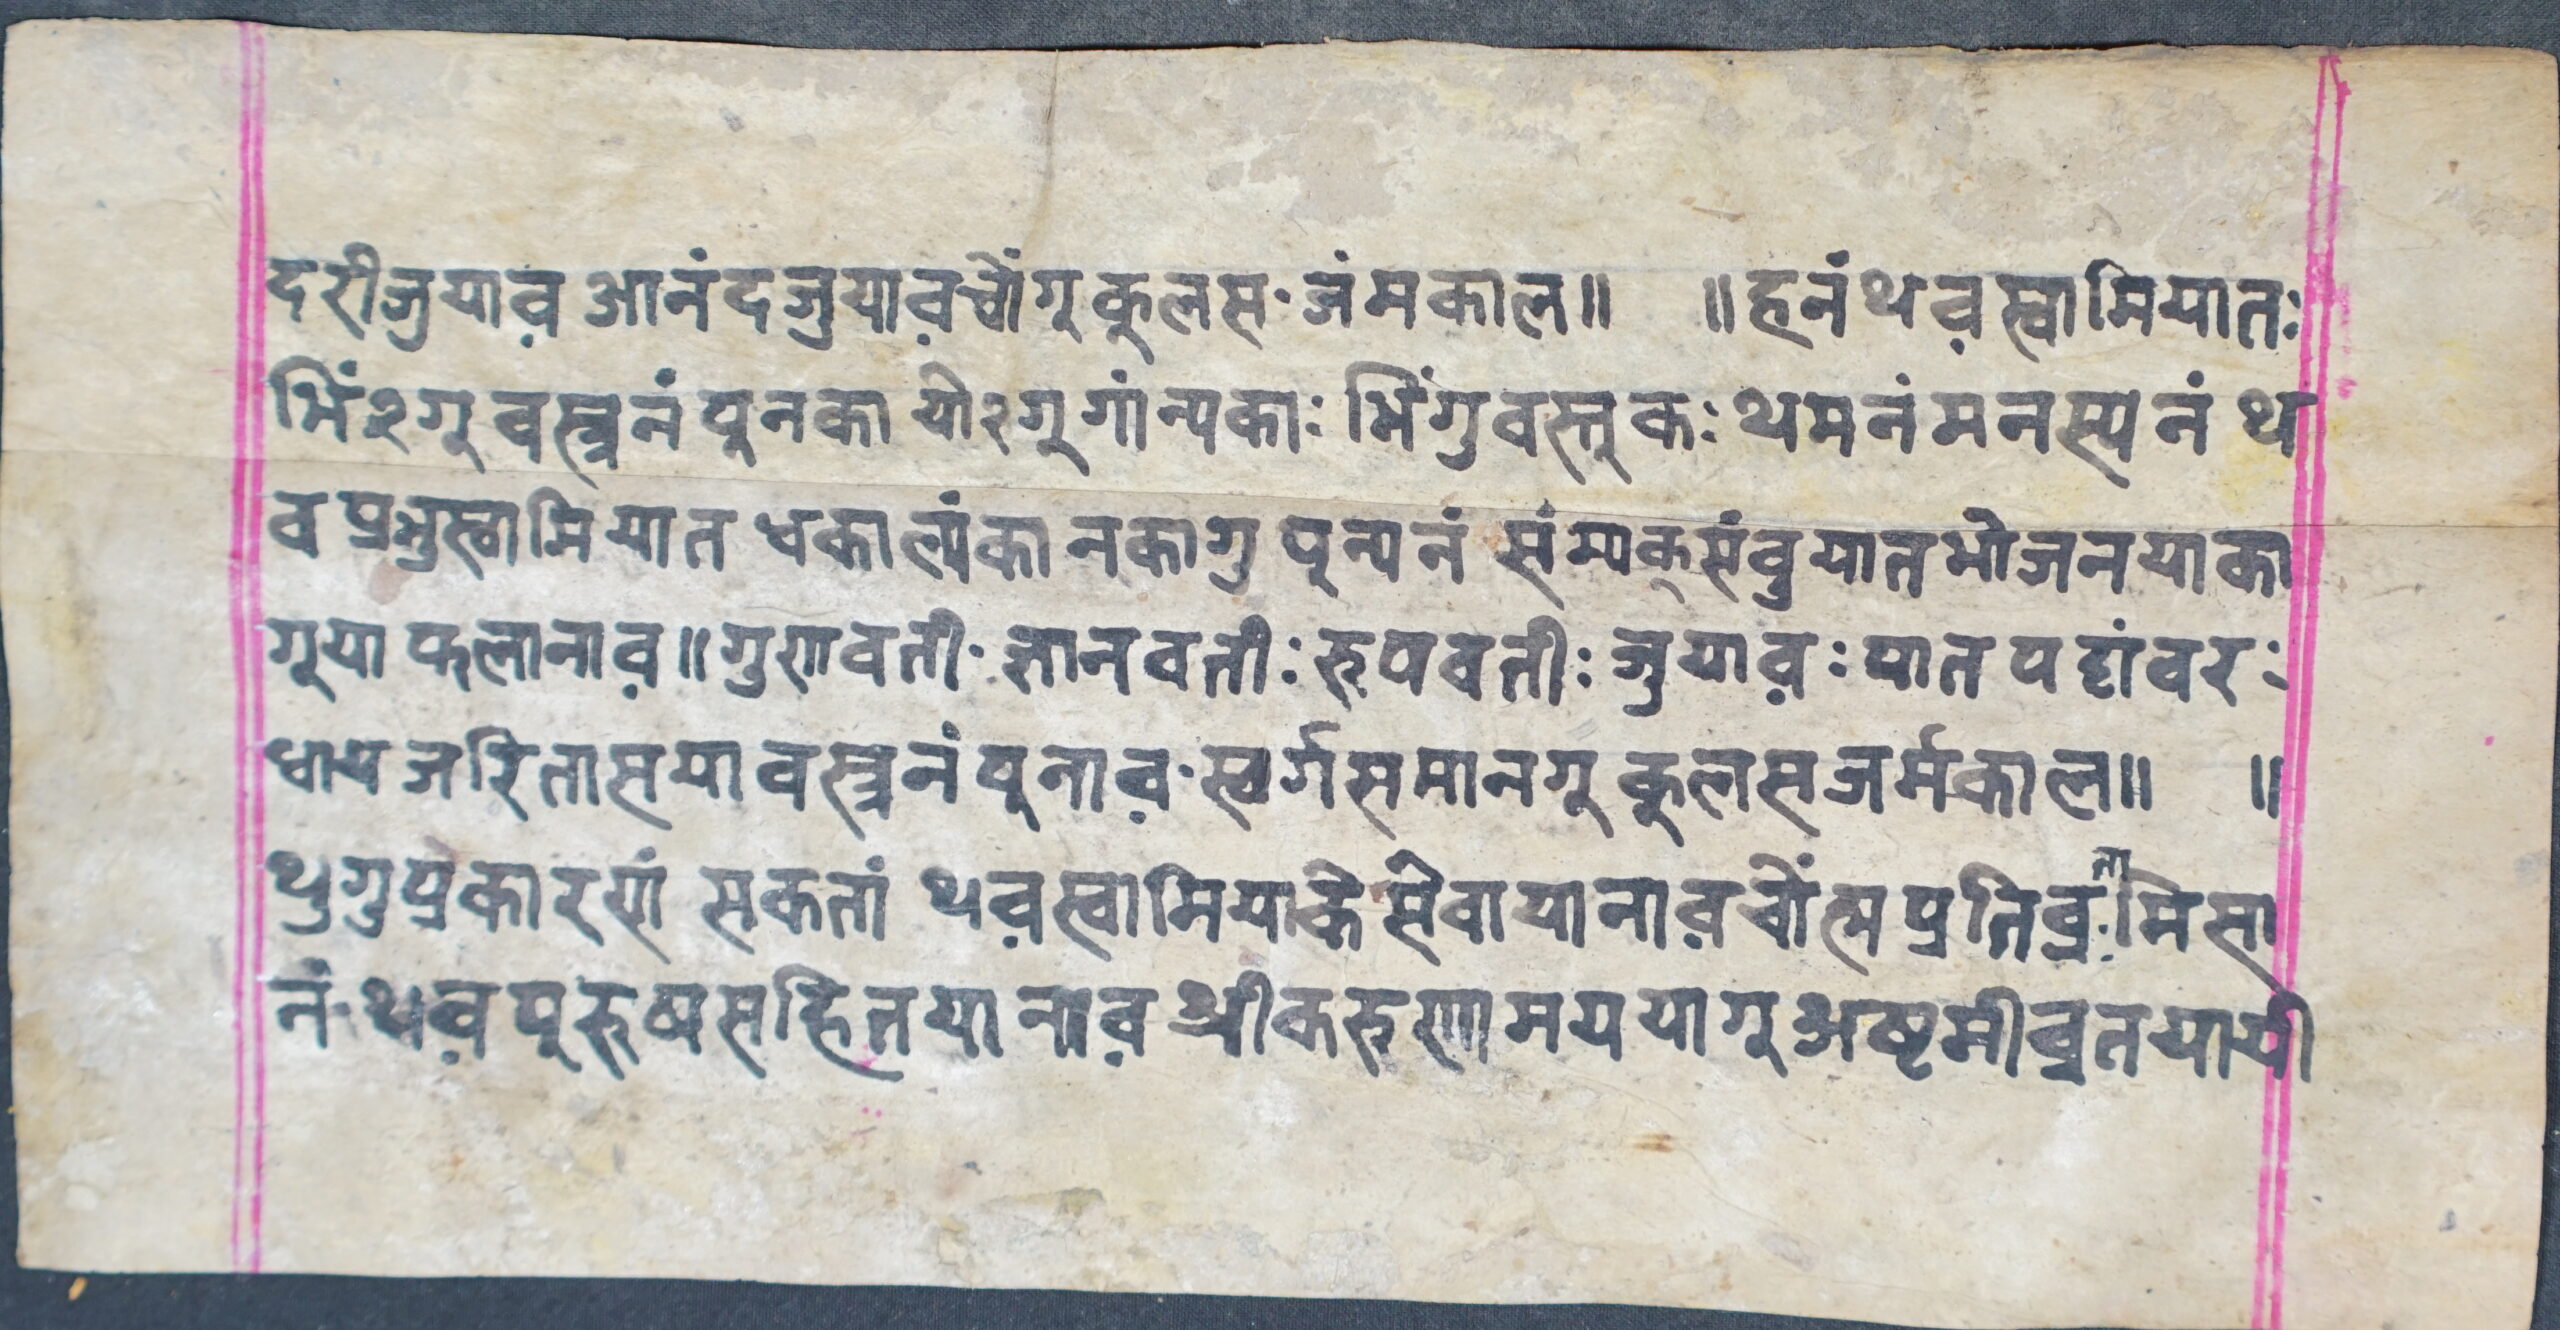 दरीजुयाव़ आनंदजुयाव़चोंगू कुलस· जंमकाल॥ ॥हनं थव़स्वामियातः
भिं२गू वस्त्रनं पुनका यो२गू गांन्यकाः भिंगुवस्तुकः थमनं मनस्यं नं थ
व प्रभुस्वामियात धकाल्यंका नकागु पून्यनं संम्यक्संवुयात भोजनयाका
गूया फलानाव़॥ गुणवती· ज्ञानवतीः रूपवतीः जुयाव़ः पात पट्टांवरः
धाय जरितासया वस्त्रनं पुनाव़· स्वर्गसमानगू कुलस जर्मकाल॥ ॥
थुगुप्रकारयां सकतां थव़स्वामियाके सेवायानाव़चोंह्म प्रतिव्रता· मिसा
नं· थव़पुरूषसहितयानाव़ श्रीकरूणामययागू अष्टमीव्रतयायी